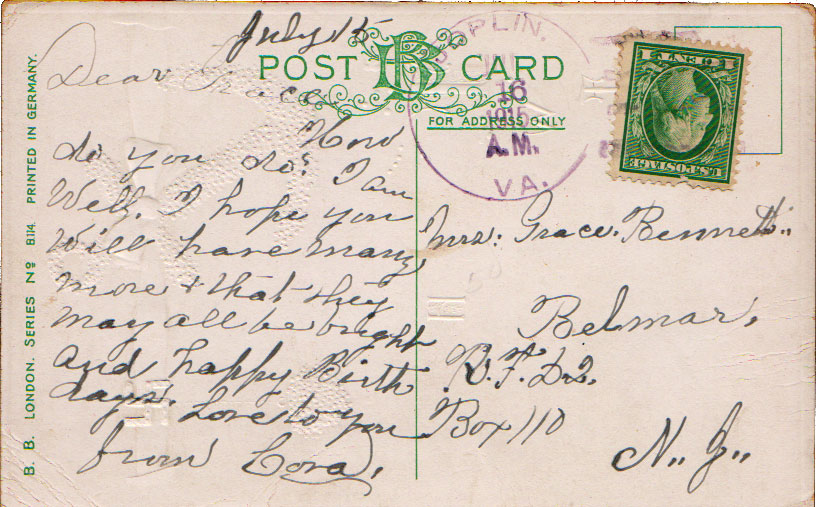 July 15
POST CARD
FOR ADDRESS ONLY
Dear Grace
How
do you do? I am
Well. I hope you
Will have many
more + that they
may all be bright
and happy Birth
days. Love to you
from Cora.
Mrs. Grace. Bennett.
Belmar,
R. F. D. 2.
Box 110
N. J.
B. B. LONDON. SERIES No B.114. PRINTED IN GERMANY.
OPLIN.
16
1915
A.M.
VA.
U.S. POSTAGE
1 CENT 1